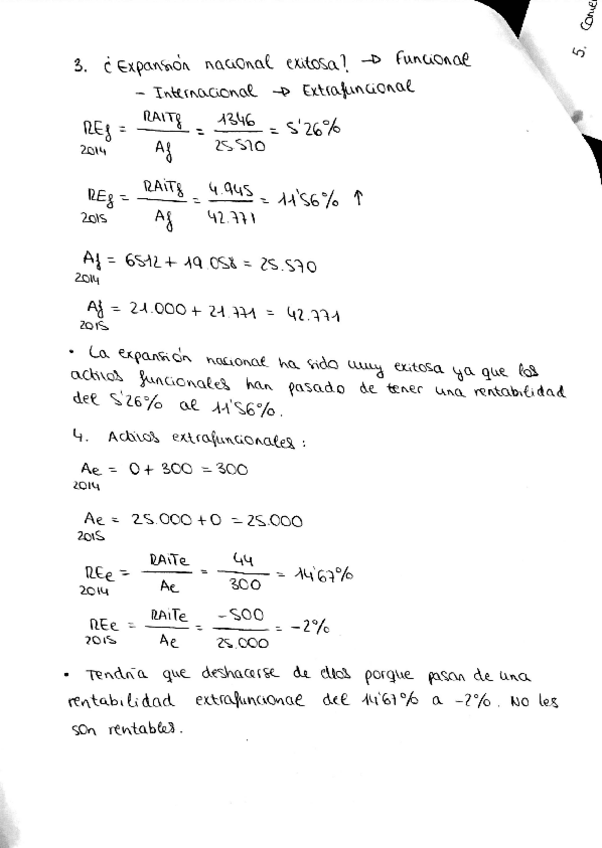 5. Conve
3. ¿Expansión nacional exitosa? → Funcional
- Internacional → Extrafuncional
REf 2014 = RAITf / Af = 1346 / 25.570 = 5'26%
REf 2015 = RAITf / Af = 4.945 / 42.771 = 11'56% ↑
Af 2014 = 6512 + 19.058 = 25.570
Af 2015 = 21.000 + 21.771 = 42.771
• La expansión nacional ha sido muy exitosa ya que los
activos funcionales han pasado de tener una rentabilidad
del 5'26% al 11'56%.
4. Activos extrafuncionales:
Ae 2014 = 0 + 300 = 300
Ae 2015 = 25.000 + 0 = 25.000
REe 2014 = RAITe / Ae = 44 / 300 = 14'67%
REe 2015 = RAITe / Ae = -500 / 25.000 = -2%
• Tendría que deshacerse de ellos porque pasan de una
rentabilidad extrafuncional del 14'67% a -2%. No les
son rentables.